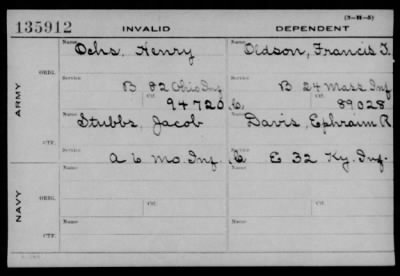 (3-H-5)
135912 INVALID DEPENDENT
ARMY
ORIG.
Name Ochs, Henry Name Oldson, Francis T.
Service B 82 Ohio Inf Service B 24 Mass Inf
Ctf. 94720 C. Ctf. 89028
CTF.
Name Stubbs, Jacob Name Davis, Ephraim R
Service A 6 Mo. Inf. C Service E 32 Ky. Inf.
NAVY
ORIG.
Name Name
Service Ctf. Service Ctf.
CTF.
Name Name